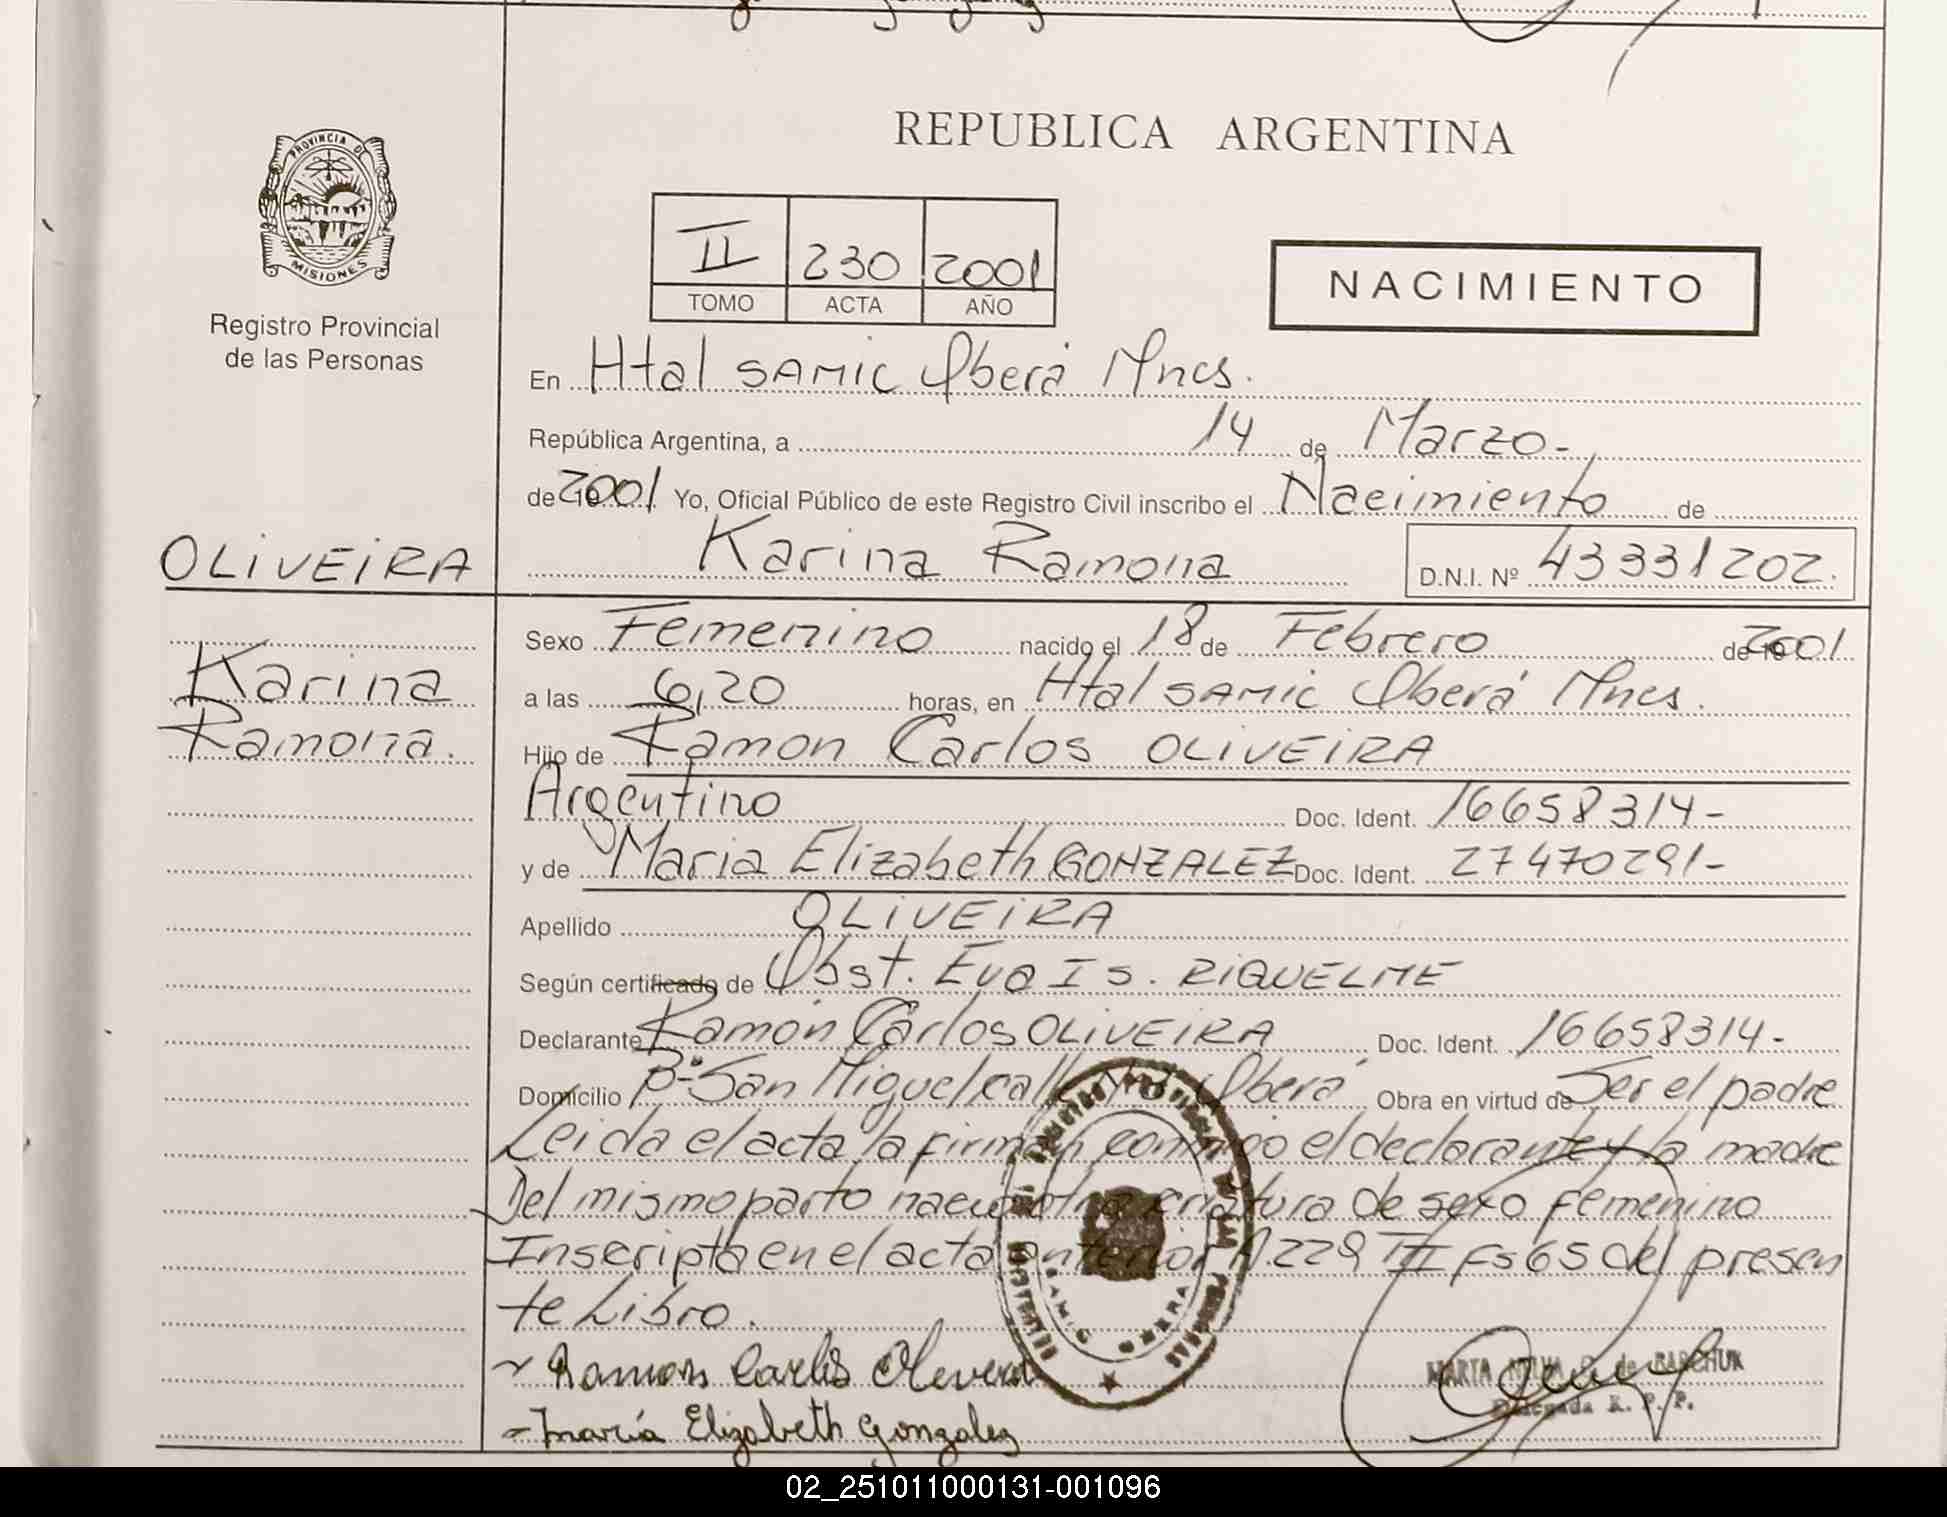 REPUBLICA ARGENTINA
PROVINCIA DE
MISIONES
Registro Provincial
de las Personas
II 230 2001
TOMO ACTA AÑO
NACIMIENTO
En Htal SAMIC Oberá Mnes.
República Argentina, a 14 de Marzo-
de 2001 Yo, Oficial Público de este Registro Civil inscribo el Nacimiento de
OLIVEIRA
Karina Ramona D.N.I. Nº 43331202.
Karina
Ramona.
Sexo Femenino nacido el 18 de Febrero de 2001
a las 6,20 horas, en Htal SAMIC Oberá Mnes.
Hijo de Ramon Carlos OLIVEIRA
Argentino Doc. Ident. 16658314-
y de Maria Elizabeth GONZALEZ Doc. Ident. 27470291-
Apellido OLIVEIRA
Según certificado de Obst. Eva Is. RIQUELME
Declarante Ramón Carlos OLIVEIRA Doc. Ident. 16658314-
Domicilio Bº San Miguel calle Oberá Obra en virtud de Ser el padre
Leida el acta la firman conmigo el declarante y la madre
Del mismo parto nacio otra criatura de sexo femenino
Inscripta en el acta anterior A.229 TII Fs 65 del presen
te Libro.
Ramon Carlos Olivera
María Elizabeth Gonzalez
MARTA de BARCHUK
Delegada R. P. P.
SAMIC OBERA
02_251011000131-001096